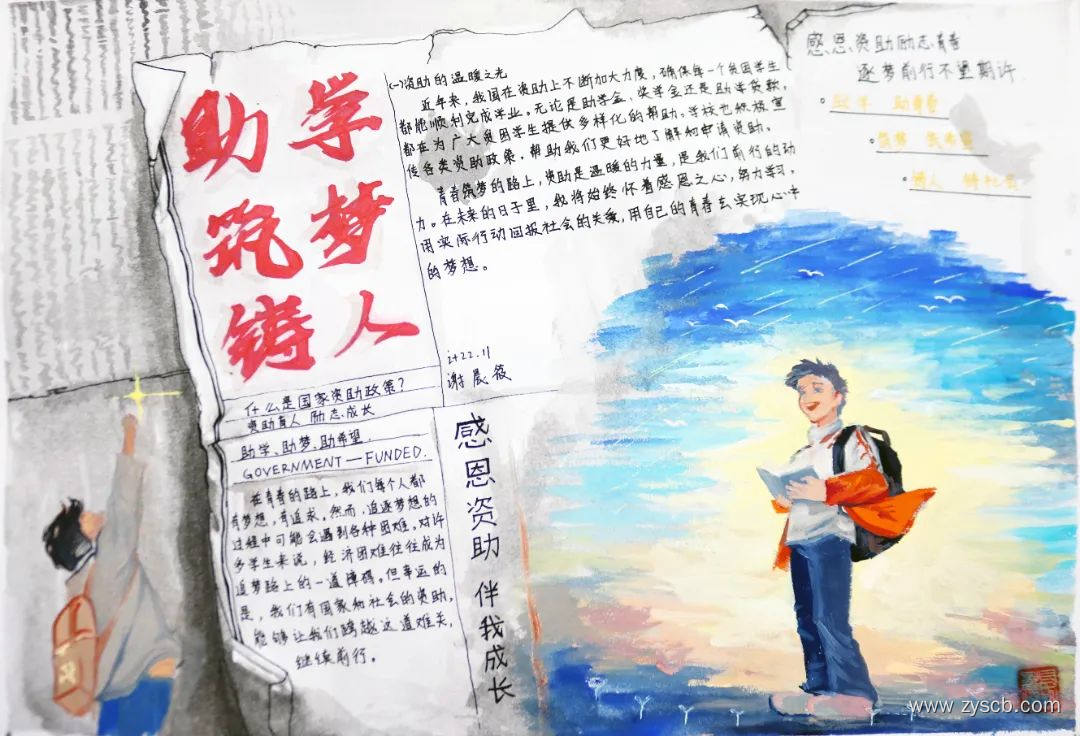 助学
筑梦
铸人
(一)资助的温暖之光
近年来,我国在资助上不断加大力度,确保每一个贫困学生
都能顺利完成学业。无论是助学金、奖学金还是助学贷款,
都在为广大贫困学生提供多样化的帮助。学校也积极宣
传各类资助政策,帮助我们更好地了解和申请资助。
青春筑梦的路上,资助是温暖的力量,是我们前行的动
力。在未来的日子里,我将始终怀着感恩之心,努力学习,
用实际行动回报社会的关爱,用自己的青春去实现心中
的梦想。
计22.11
谢晨筱
感恩资助励志青春
逐梦前行不望期许
助学 助青春
筑梦
铸人
什么是国家资助政策?
资助育人 励志成长
助学、助梦、助希望.
GOVERNMENT—FUNDED.
在青春的路上,我们每个人都
有梦想,有追求。然而,追逐梦想的
过程中可能会遇到各种困难。对许
多学生来说,经济困难往往成为
追梦路上的一道障碍。但幸运的
是,我们有国家和社会的资助,
能够让我们跨越这道难关,
继续前行。
感恩资助 伴我成长
www.zyscb.com